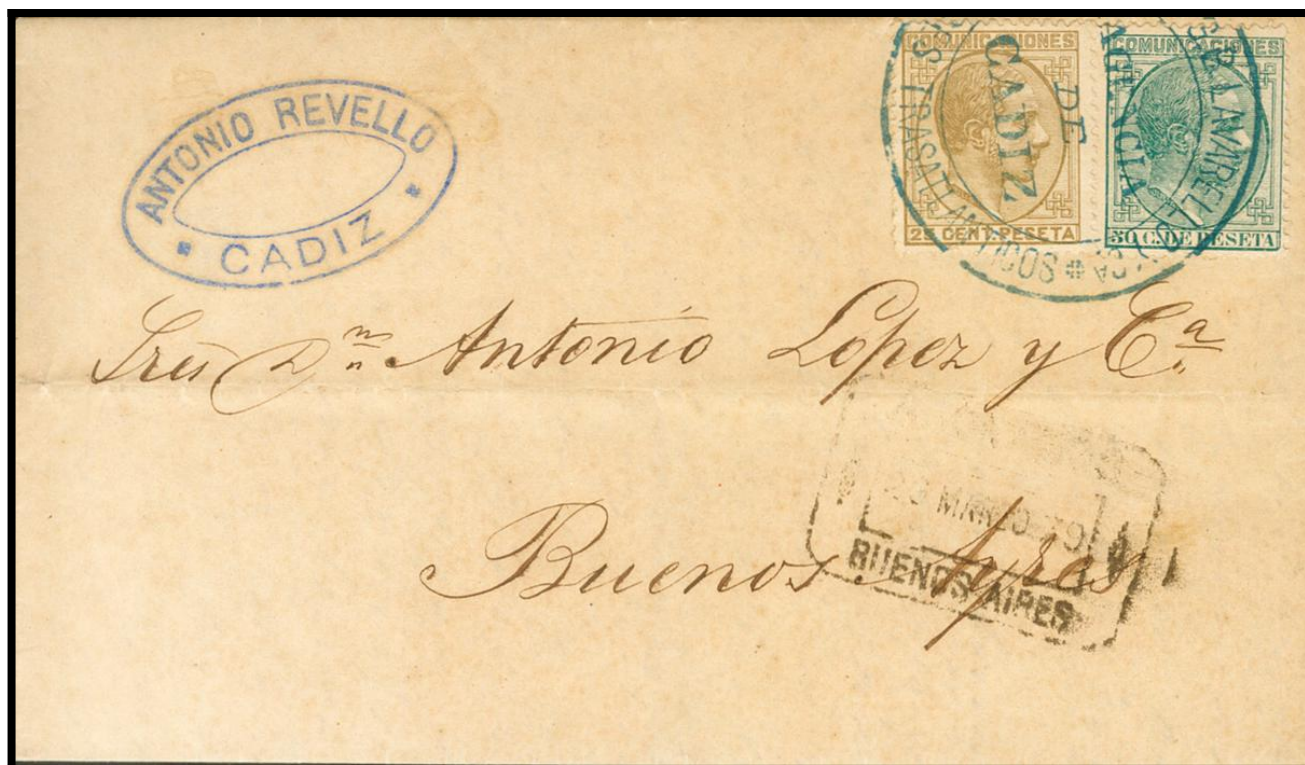 ANTONIO REVELLO
CADIZ
COMUNICACIONES
25 CENT. PESETA
COMUNICACIONES
50 C. DE PESETA
DE
CADIZ
LAVARELLO Y CA
TRASATLANTICOS
Sres Dn Antonio Lopez y Ca.
Buenos Ayres
MARZO 79
BUENOS AIRES